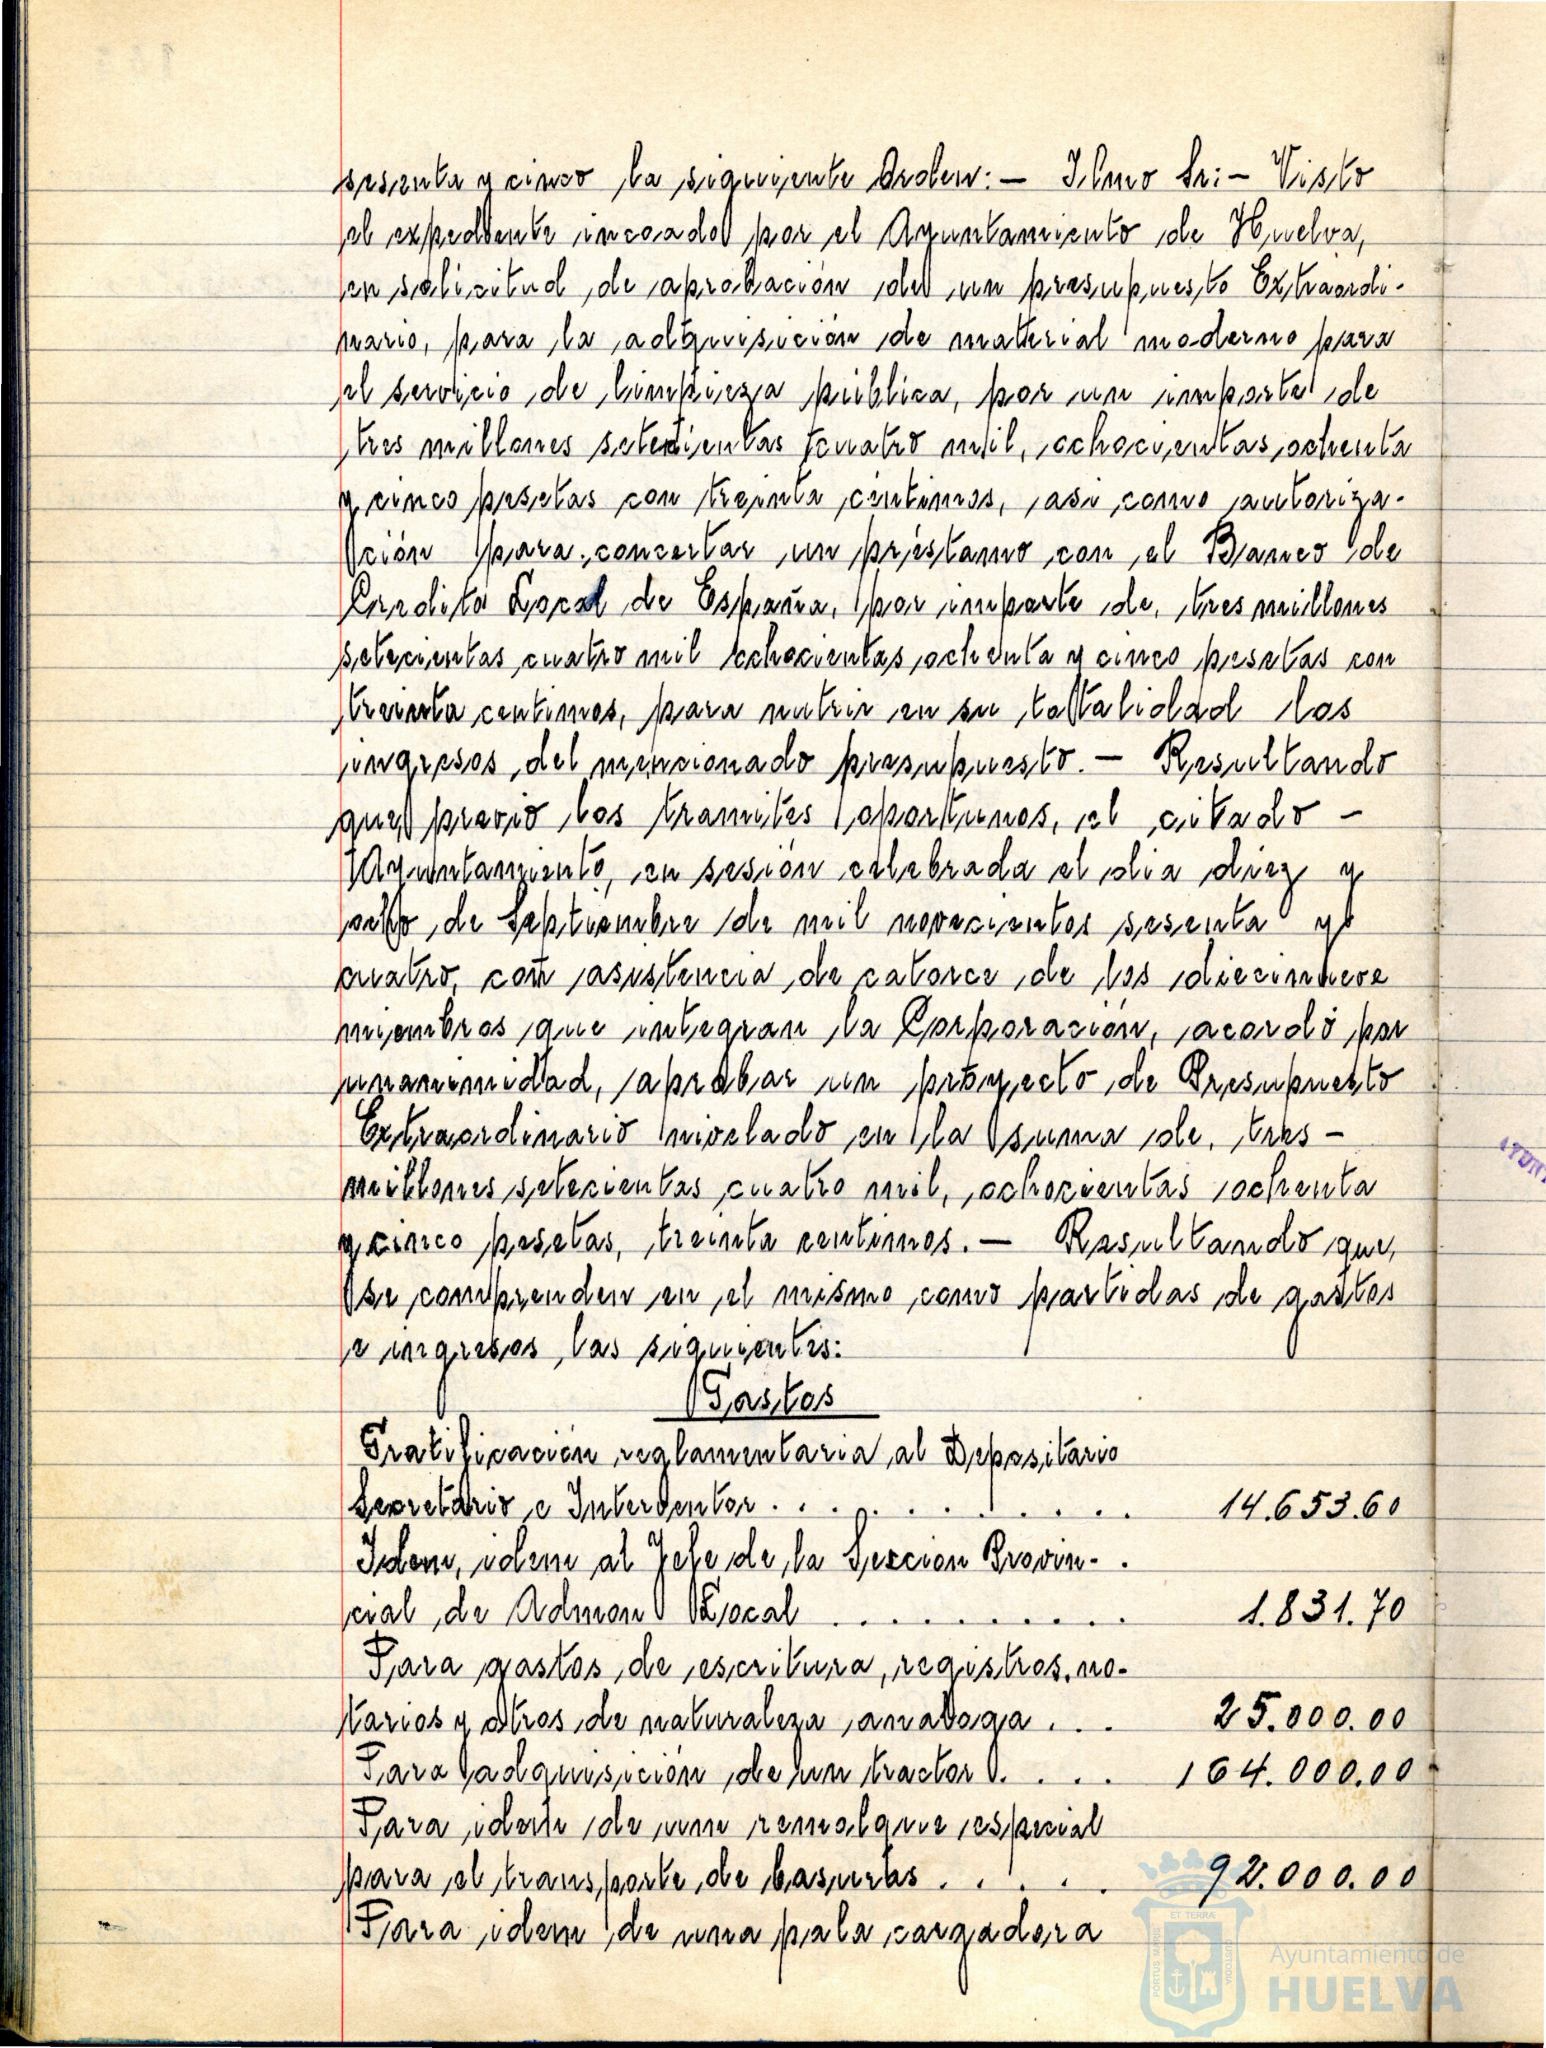 sesenta y cinco la siguiente Orden: — Ilmo Sr: — Visto
el expediente incoado por el Ayuntamiento de Huelva,
en solicitud de aprobación de un presupuesto Extraordi-
nario, para la adquisición de material moderno para
el servicio de limpieza pública, por un importe de
tres millones setecientas cuatro mil, ochocientas ochenta
y cinco pesetas con treinta céntimos, asi como autoriza-
ción para concertar un préstamo con el Banco de
Credito Local de España, por importe de, tres millones
setecientas cuatro mil ochocientas ochenta y cinco pesetas con
treinta centimos, para nutrir en su totalidad los
ingresos del mencionado presupuesto. — Resultando
que previo los tramites oportunos, el citado —
Ayuntamiento, en sesión celebrada el dia diez y
ocho de Septiembre de mil novecientos sesenta y
cuatro, con asistencia de catorce de los diecinueve
miembros que integran la Corporación, acordó por
unanimidad, aprobar un proyecto de Presupuesto
Extraordinario nivelado en la suma de, tres —
millones setecientas cuatro mil, ochocientas ochenta
y cinco pesetas, treinta centimos. — Resultando que,
se comprenden en el mismo como partidas de gastos
e ingresos las siguientes:
Gastos
Gratificación reglamentaria al Depositario
Secretario e Interventor . . . . . . . . . 14.653.60
Idem, idem al Jefe de la Seccion Provin- .
cial de Admon Local . . . . . . . . . 1.831.70
Para gastos de escritura, registros, no-
tarios y otros de naturaleza analoga . . . 25.000.00
Para adquisición de un tractor . . . . 164.000.00
Para idem de un remolque especial
para el transporte de basuras . . . . . 92.000.00
Para idem de una pala cargadora
ET TERRÆ
PORTUS MARIS
CUSTODIA
Ayuntamiento de
HUELVA